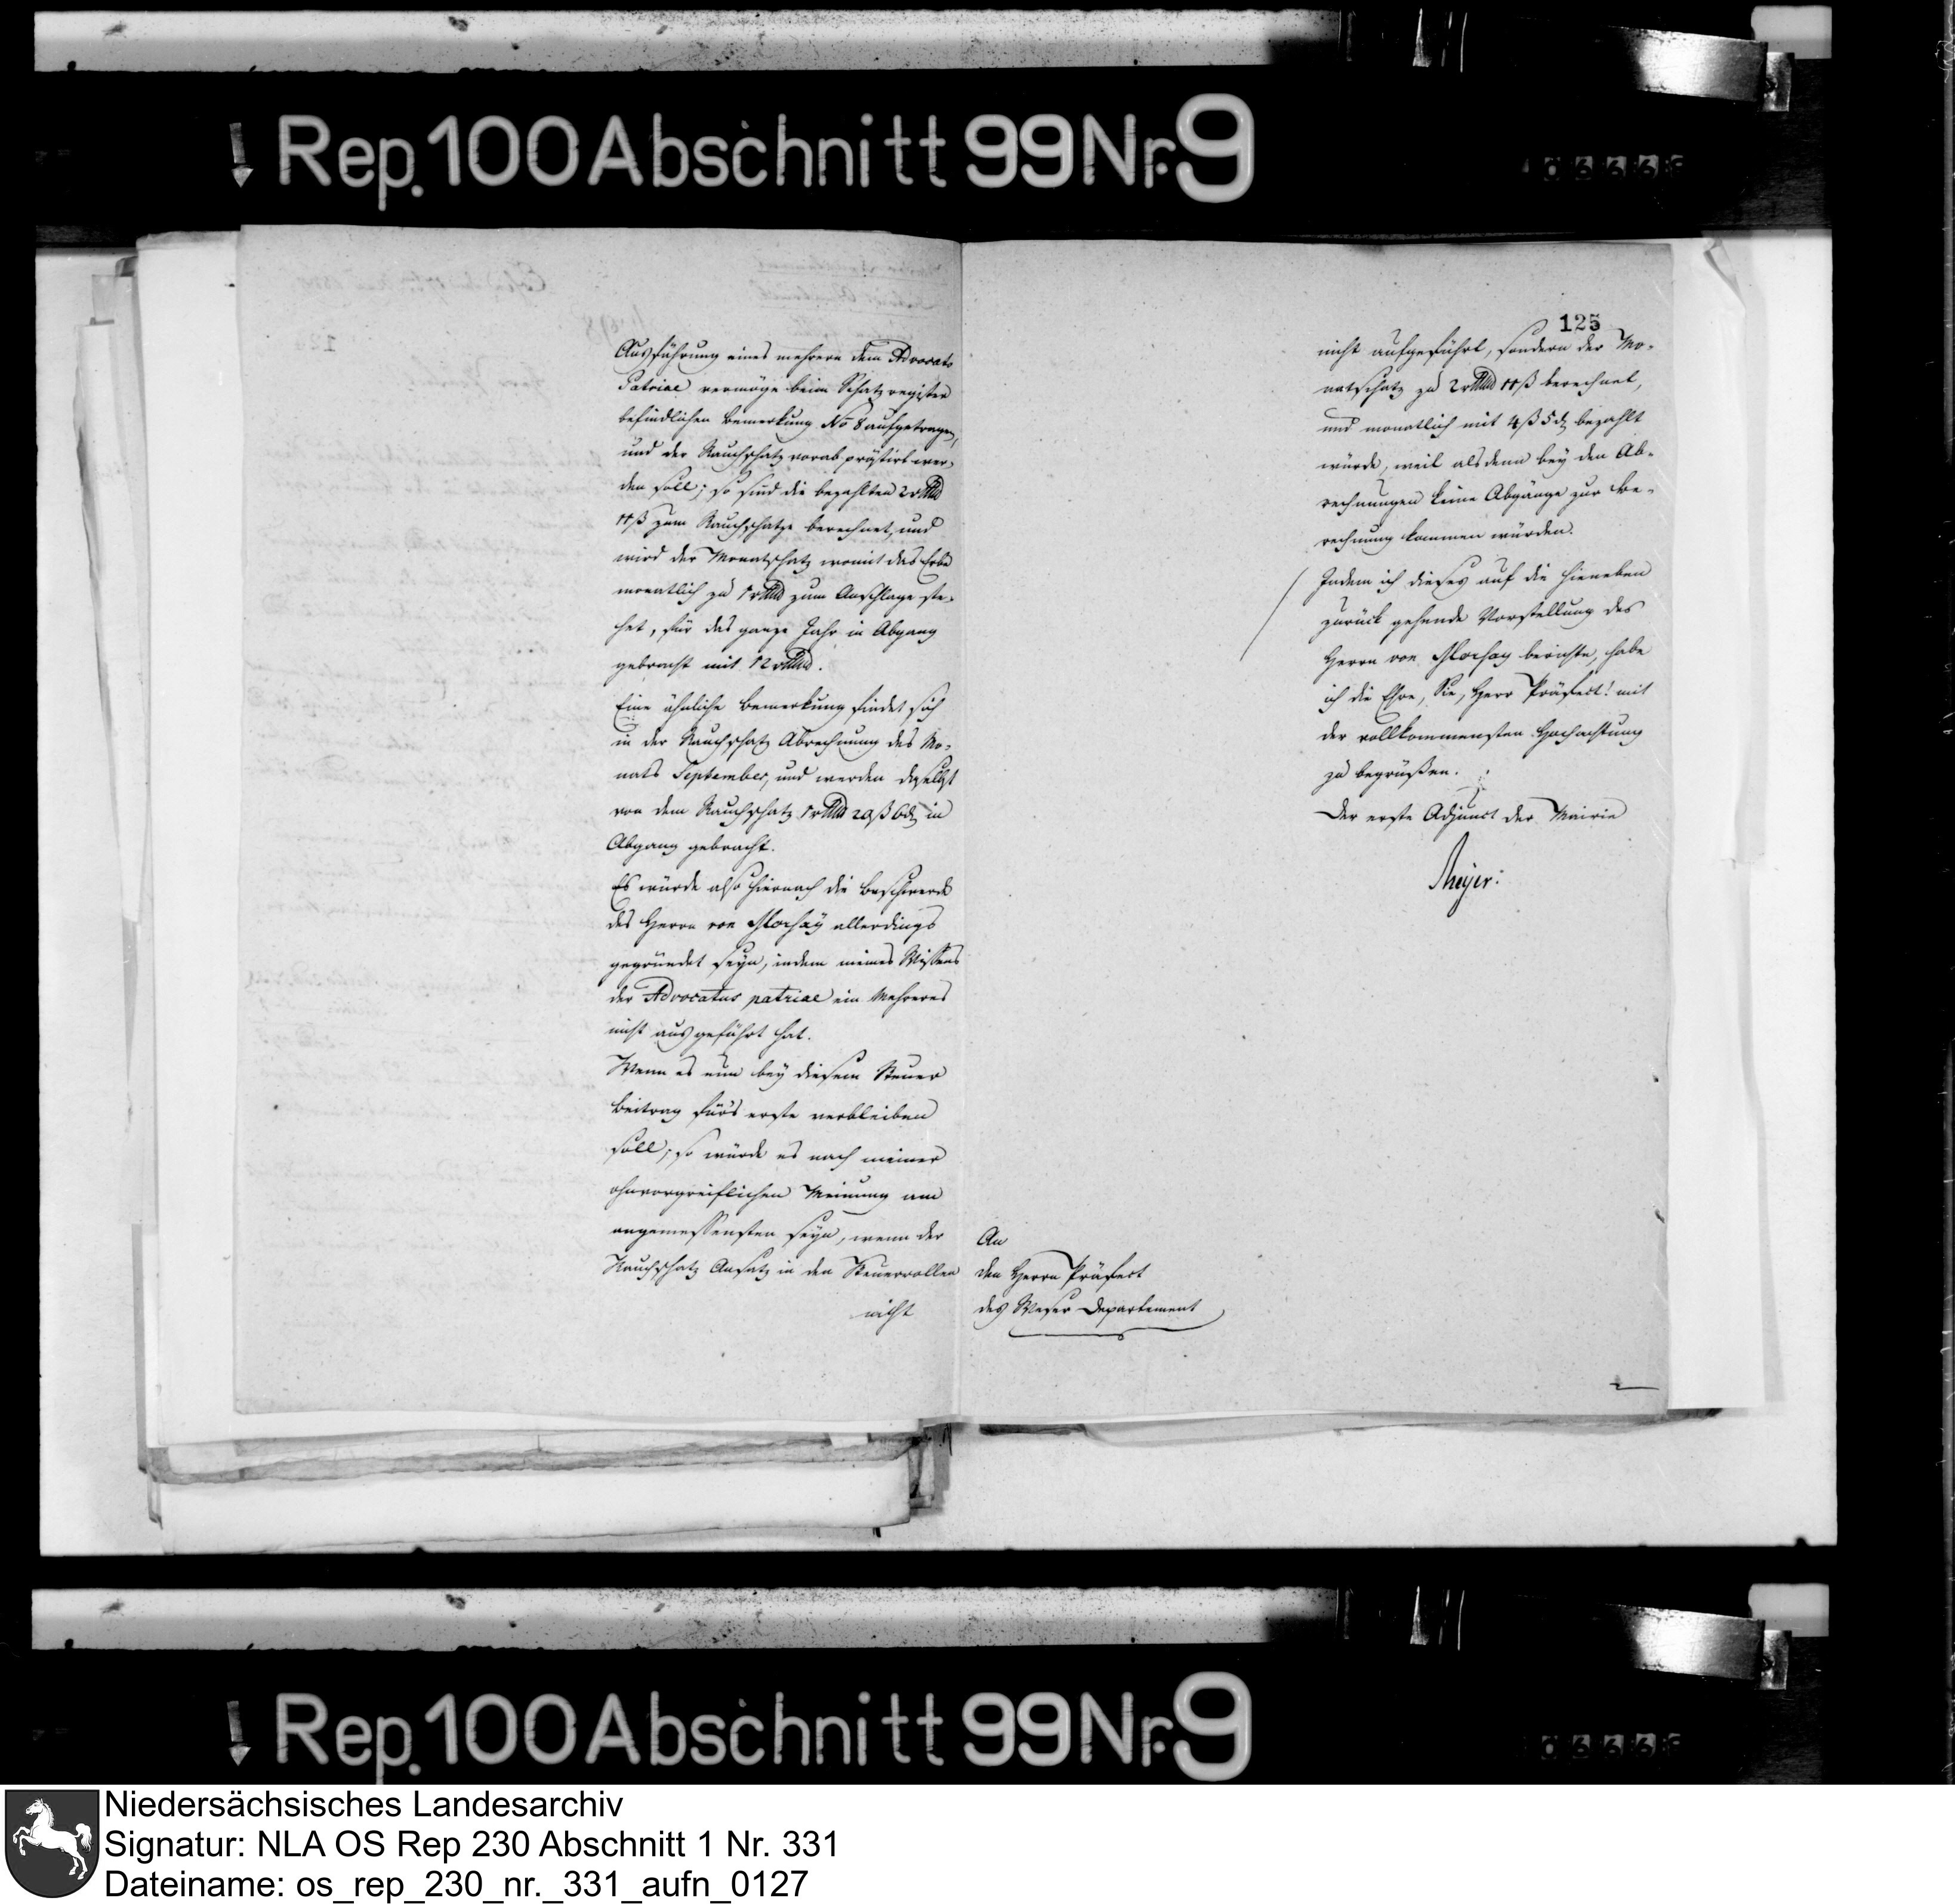 Rep. 100 Abschnitt 99 Nr. 9
Ausführung eines mehrern dem Advocato
Patriae vermöge beim Schatz register
befindlichen Bemerkung No 8 aufgetragen,
und der Rauchschatz vorab prästirt wer-
den soll; so sind die bezahlten 2 rthlr
11 ß zum Rauchschatze berechnet, und
wird der Monatschatz womit das Erbe
monatlich zu 1 rthlr zum Anschlage ste-
het, für das ganze Jahr in Abgang
gebracht mit 12 rthlr.
Eine ähnliche Bemerkung findet sich
in der Rauchschatz Abrechnung des Mo-
nats September, und werden daselbst
von dem Rauchschatz 1 rthlr 20 ß 6 d in
Abgang gebracht.
Es würde also hiernach die Beschwerde
des Herrn von allerdings
gegründet seyn, indem meines Wissens
der Advocatus patriae ein Mehreres
nicht ausgeführt hat.
Wenn es nun bey diesem Steuer
Beitrag für's erste verbleiben
soll; so würde es nach meiner
ohnvorgreiflichen Meinung am
angemessensten seyn, wenn der
Rauchschatz Ansatz in den Steuerrollen
nicht
125
nicht aufgeführt, sondern der Mo-
natschatz zu 2 rthlr 11 ß berechnet,
und monatlich mit 4 ß 5 d bezahlt
würde, weil alsdenn bey den Ab-
rechnungen keine Abgänge zur Be-
rechnung kommen würden.
Indem ich dieses auf die hieneben
zurück gehende Vorstellung des
Herrn von berichte, habe
ich die Ehre, Sie, Herr Präfect! mit
der vollkommensten Hochachtung
zu begrüßen.
Der erste Adjunct der Mairie
Meyer:
An
den Herrn Präfect
des Weser Departement
Rep. 100 Abschnitt 99 Nr. 9
Niedersächsisches Landesarchiv
Signatur: NLA OS Rep 230 Abschnitt 1 Nr. 331
Dateiname: os_rep_230_nr._331_aufn_0127